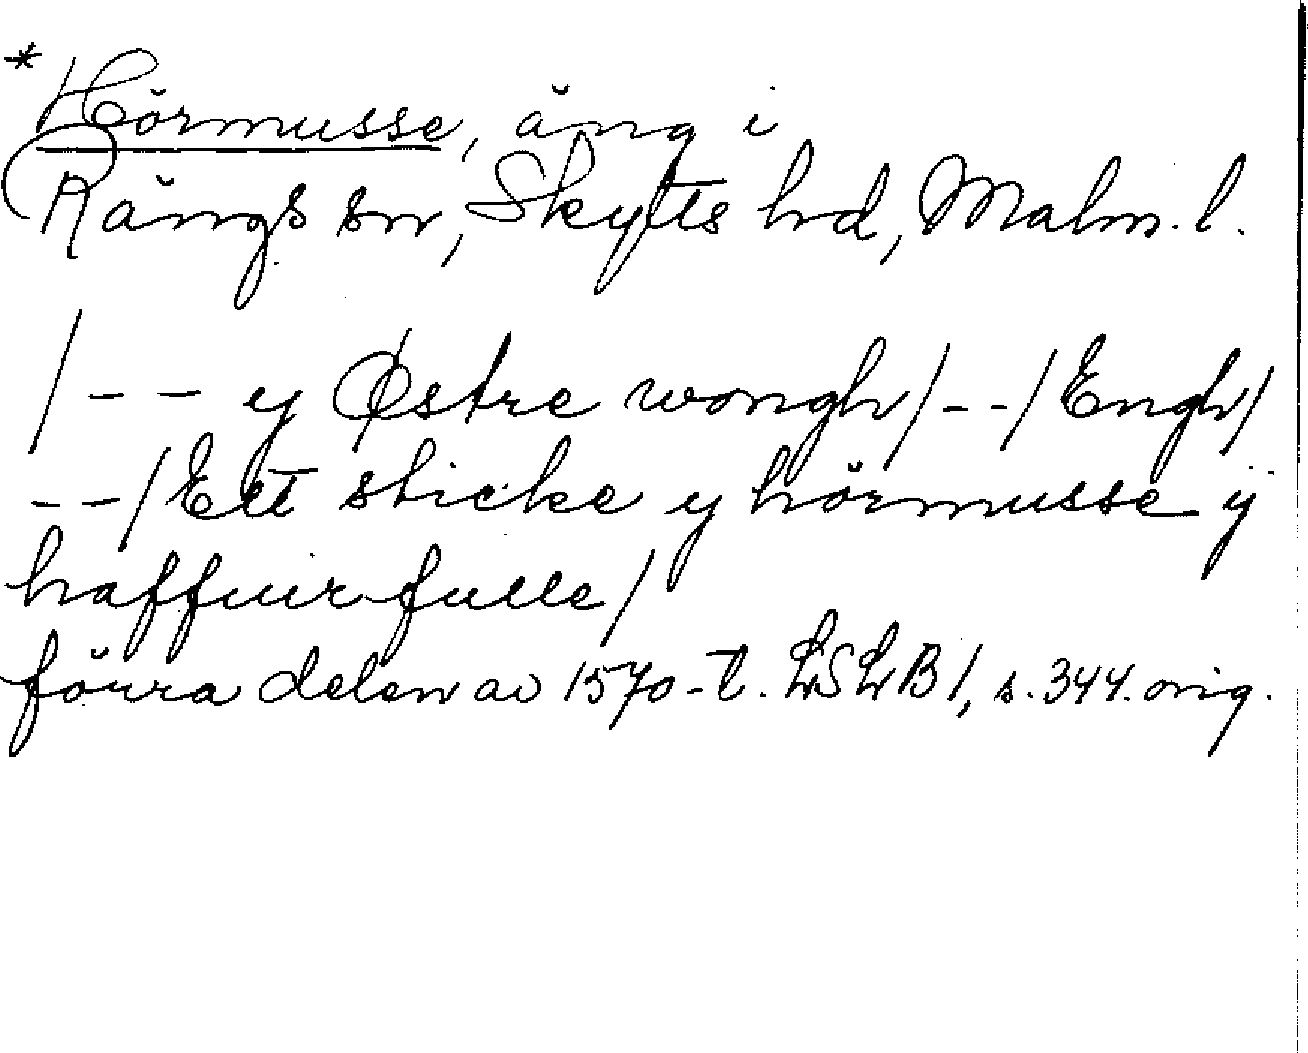 *Hörmusse, äng i
Rängs sn, Skytts hd, Malm. l.
/-- y Østre wongh/--/Engh/
--/Ett sticke y hörmusse ÿ
haffuir fulle/
förra delen av 1570-t. LSLB 1, s. 344. orig.